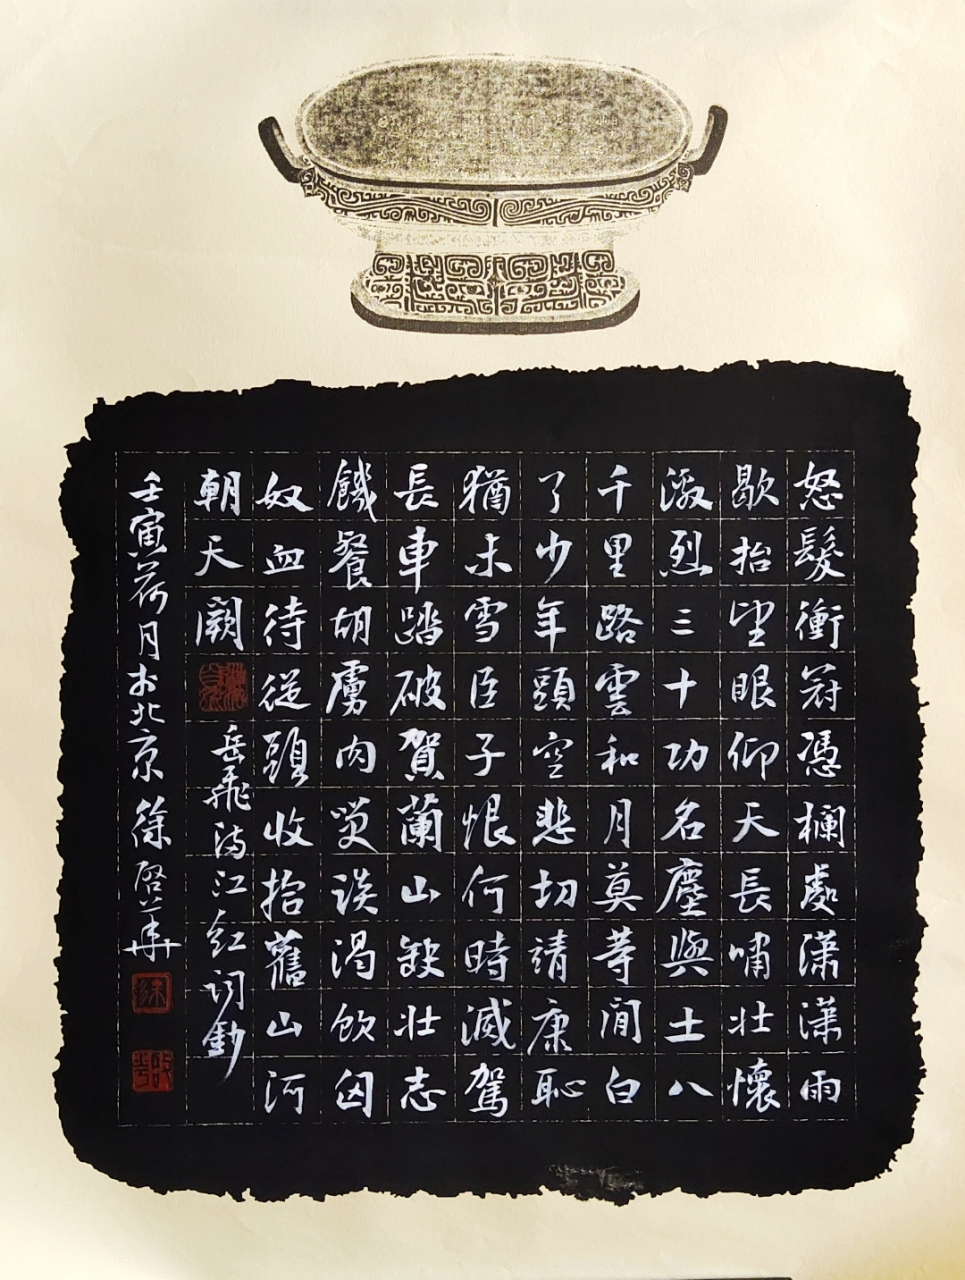 怒髮衝冠憑欄處潇潇雨
歇抬望眼仰天長嘯壯懷
激烈三十功名塵與土八
千里路雲和月莫等閒白
了少年頭空悲切靖康恥
猶未雪臣子恨何時滅駕
長車踏破賀蘭山缺壯志
饑餐胡虜肉笑談渴飲匈
奴血待從頭收拾舊山河
朝天闕
岳飛滿江紅词鈔
壬寅荷月於北京徐啓華